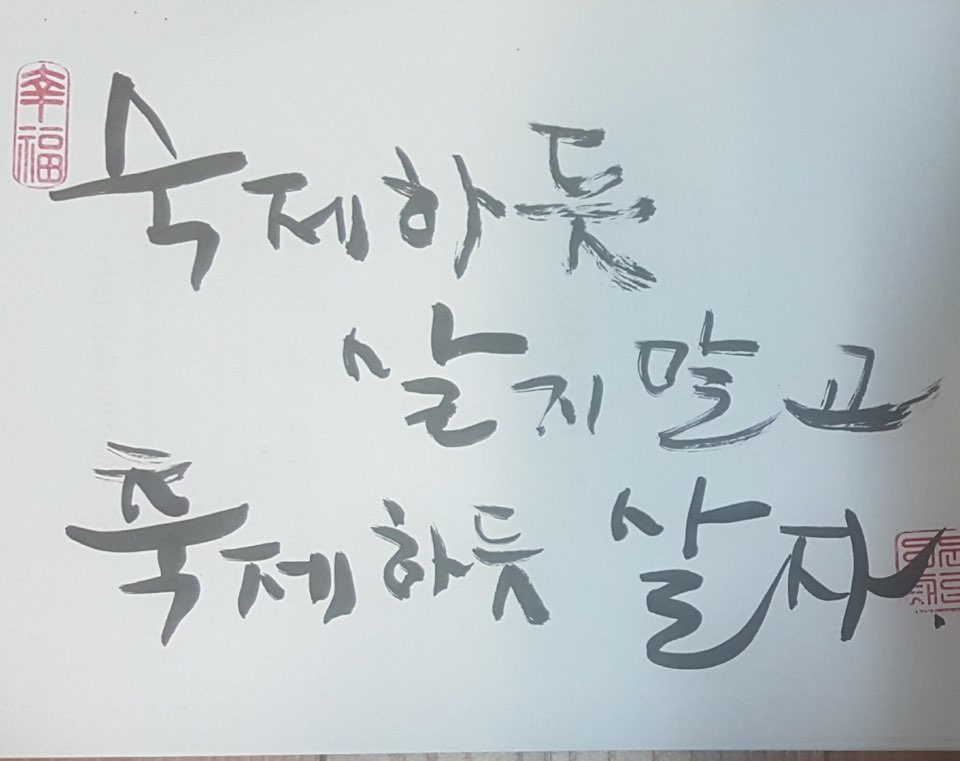 幸福
숙제하듯
살지말고
축제하듯 살자.